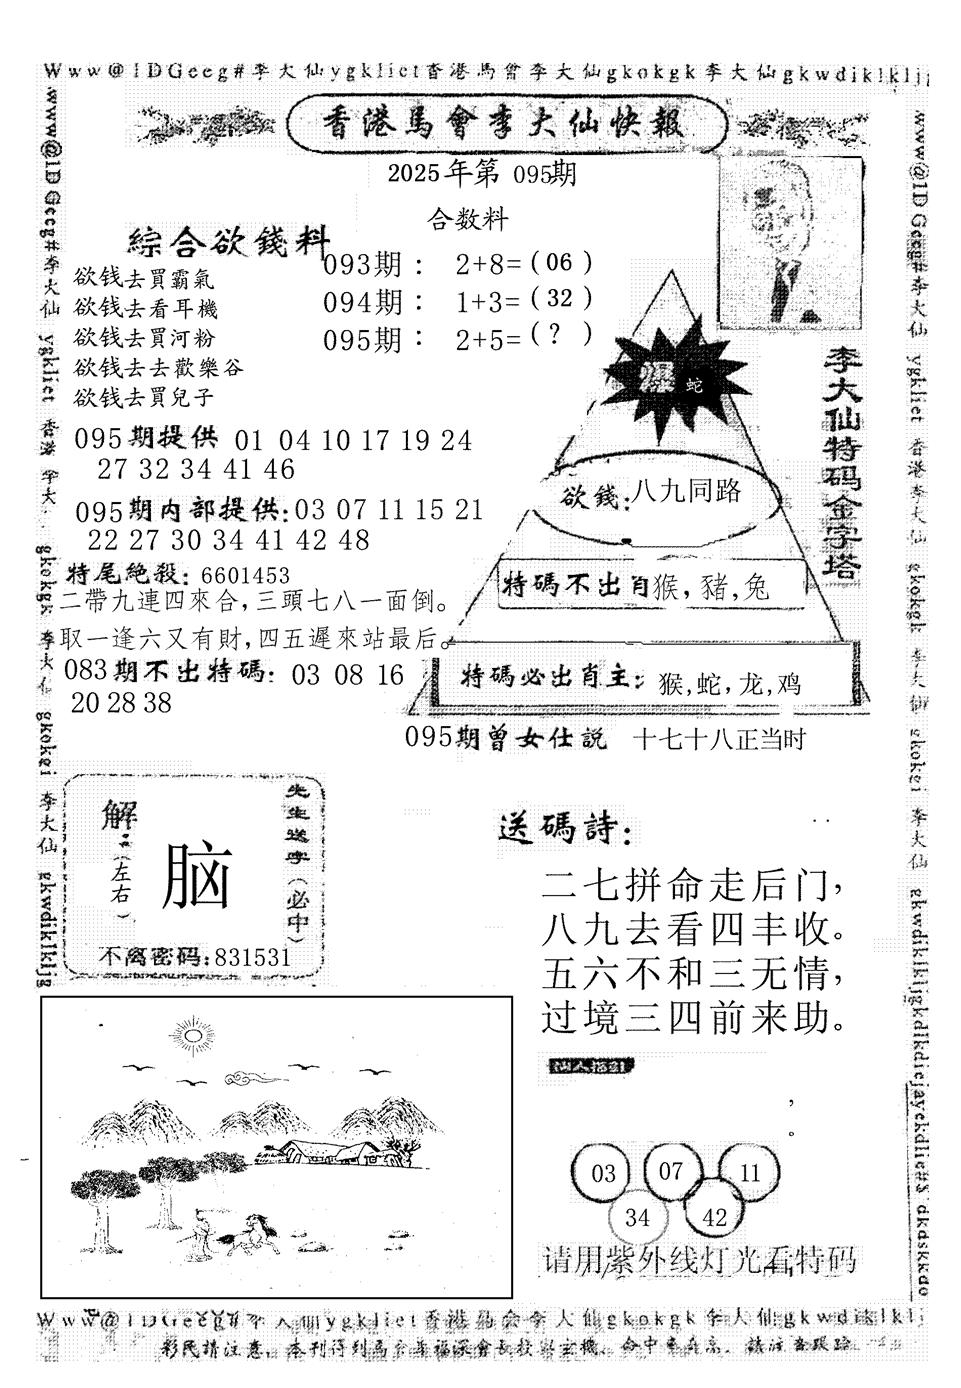 Www@1DGeeg#李大仙ygkliet香港馬曾李大仙gkokgk李大仙gkwdiklkljg
香港馬會李大仙快報
2025年第 095期
合数料
綜合欲錢料
欲钱去買霸氣
欲钱去看耳機
欲钱去買河粉
欲钱去去歡樂谷
欲钱去買兒子
093期： 2+8=(06 )
094期： 1+3=(32 )
095期： 2+5=(？ )
爆 蛇
李大仙特码金字塔
欲錢:八九同路
特碼不出肖猴, 豬, 兔
特碼必出肖主: 猴,蛇, 龙,鸡
095期提供 01 04 10 17 19 24
27 32 34 41 46
095期内部提供:03 07 11 15 21
22 27 30 34 41 42 48
特尾絶殺: 6601453
二帶九連四來合,三頭七八一面倒。
取一逢六又有財,四五遲來站最后。
083期不出特碼: 03 08 16
20 28 38
095期曾女仕説 十七十八正当时
解:(左右)
脑
先生送字(必中)
不离密码:831531
送碼詩:
二七拼命走后门,
八九去看四丰收。
五六不和三无情,
过境三四前来助。
,
。
03 07 11
34 42
请用紫外线灯光看特码
www@1DGeeg#李大仙 ygkliet 香港 李大 gkokgk 李大仙 gkokei 李大仙 gkwdiklkljg
www@1DGeeg#李大仙 ygkliet 香港李大仙 gkokgk 李大仙 gkokei 李大仙 gkwdiklkljgkdlkdiejayekdlie#$ dkdskkdo